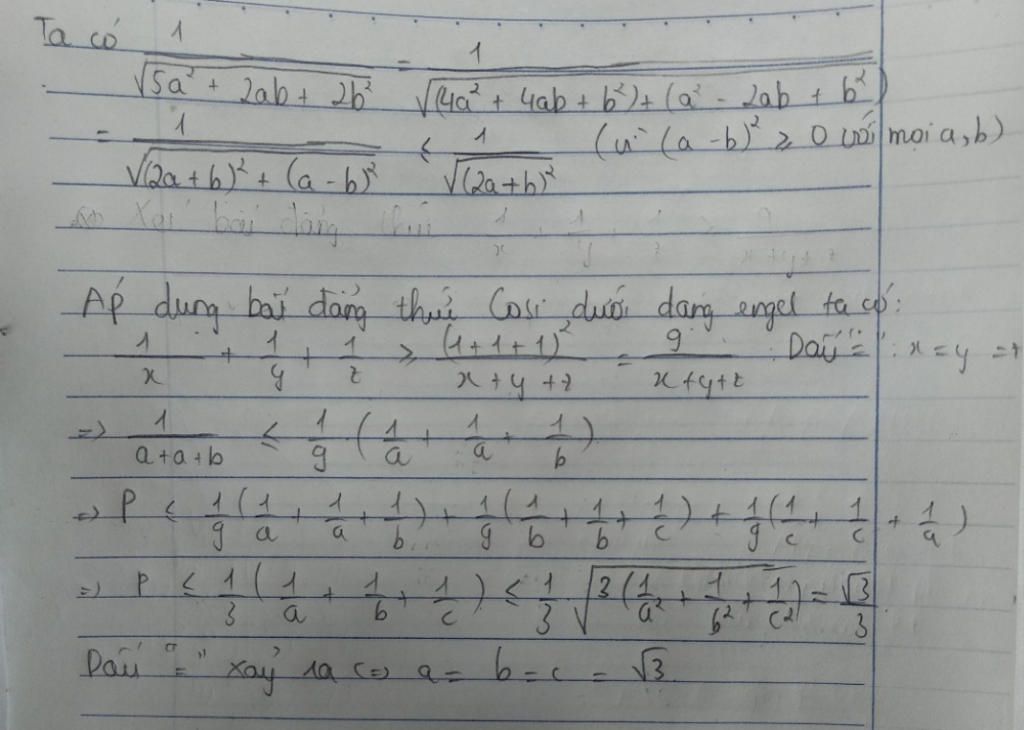 Ta có 1/√(5a² + 2ab + 2b²) = 1/√((4a² + 4ab + b²) + (a² - 2ab + b²))
= 1/√((2a+b)² + (a-b)²) ≤ 1/√((2a+b)²) (vì (a-b)² ≥ 0 với mọi a,b)
Xét bất đẳng thức 1/x + 1/y + 1/z ≥ 9/(x+y+z)
Áp dụng bất đẳng thức Cosi dưới dạng engel ta có:
1/x + 1/y + 1/z ≥ (1+1+1)²/(x+y+z) = 9/(x+y+z) Dấu "=": x = y = z
=> 1/(a+a+b) ≤ 1/9 (1/a + 1/a + 1/b)
=> P ≤ 1/9(1/a + 1/a + 1/b) + 1/9(1/b + 1/b + 1/c) + 1/9(1/c + 1/c + 1/a)
=> P ≤ 1/3(1/a + 1/b + 1/c) ≤ 1/3 √(3(1/a² + 1/b² + 1/c²)) = √3/3
Dấu "=" xảy ra <=> a = b = c = √3